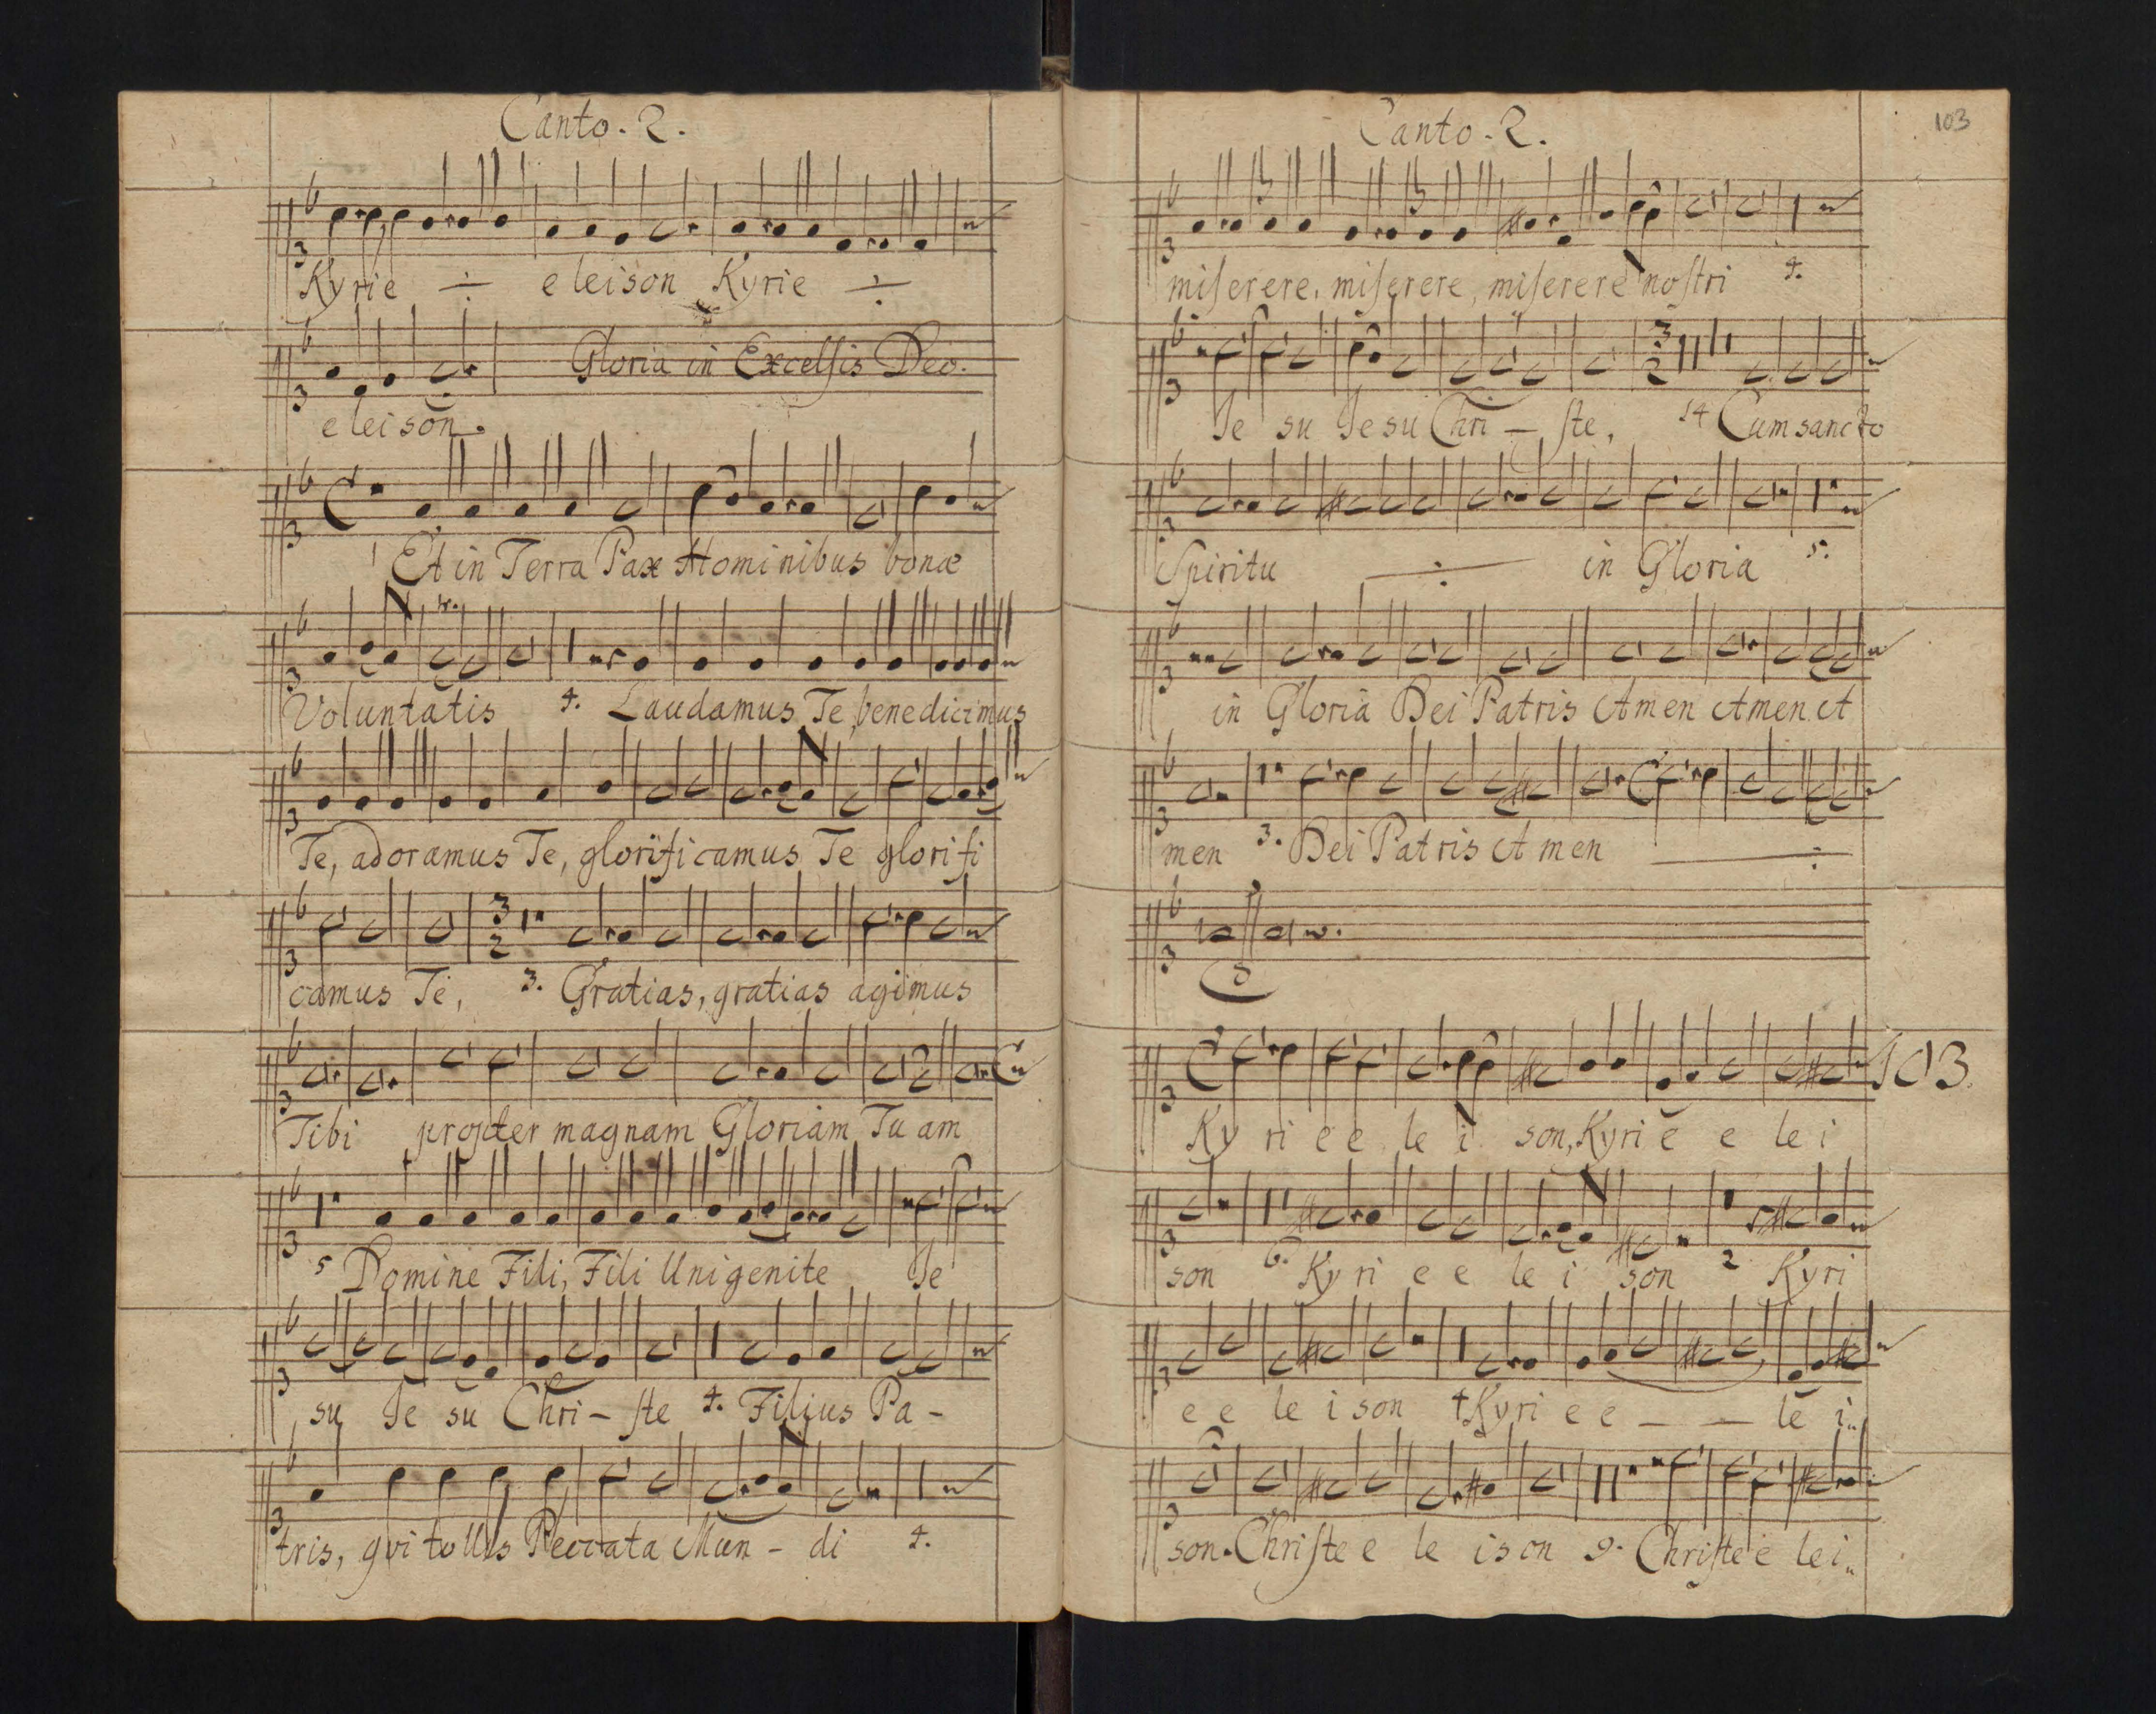 Canto. 2.
Kyrie ÷ eleison Kyrie ÷
Gloria in Excelsis Deo.
eleison.
1 Et in Terra Pax Hominibus bonæ
tr.
Voluntatis 4. Laudamus Te, benedicimus
Te, adoramus Te, glorificamus Te glorifi
3 2
camus Te, 3. Gratias, gratias agimus
Tibi propter magnam Gloriam Tuam
5 Domine Fili, Fili Unigenite Je
su Je su Chri- ſte 4. Filius Pa-
tris, qvi tollis Peccata Mun- di 4.
Canto. 2.
103
miſerere, miſerere, miſerere noſtri 4.
3 2
Je su Jesu Chri — ſte, 14 Cum sancto
Spiritu ÷ in Gloria 5.
in Gloria Dei Patris Amen Amen A
men 3. Dei Patris A men ÷
103.
Ky ri e e le i son, Kyri e e le i
son 6. Ky ri e e le i son 2 Kyri
e e le i son 4 Kyri e e — — le i
son. Chriſte e le ison 9. Chriſte e lei